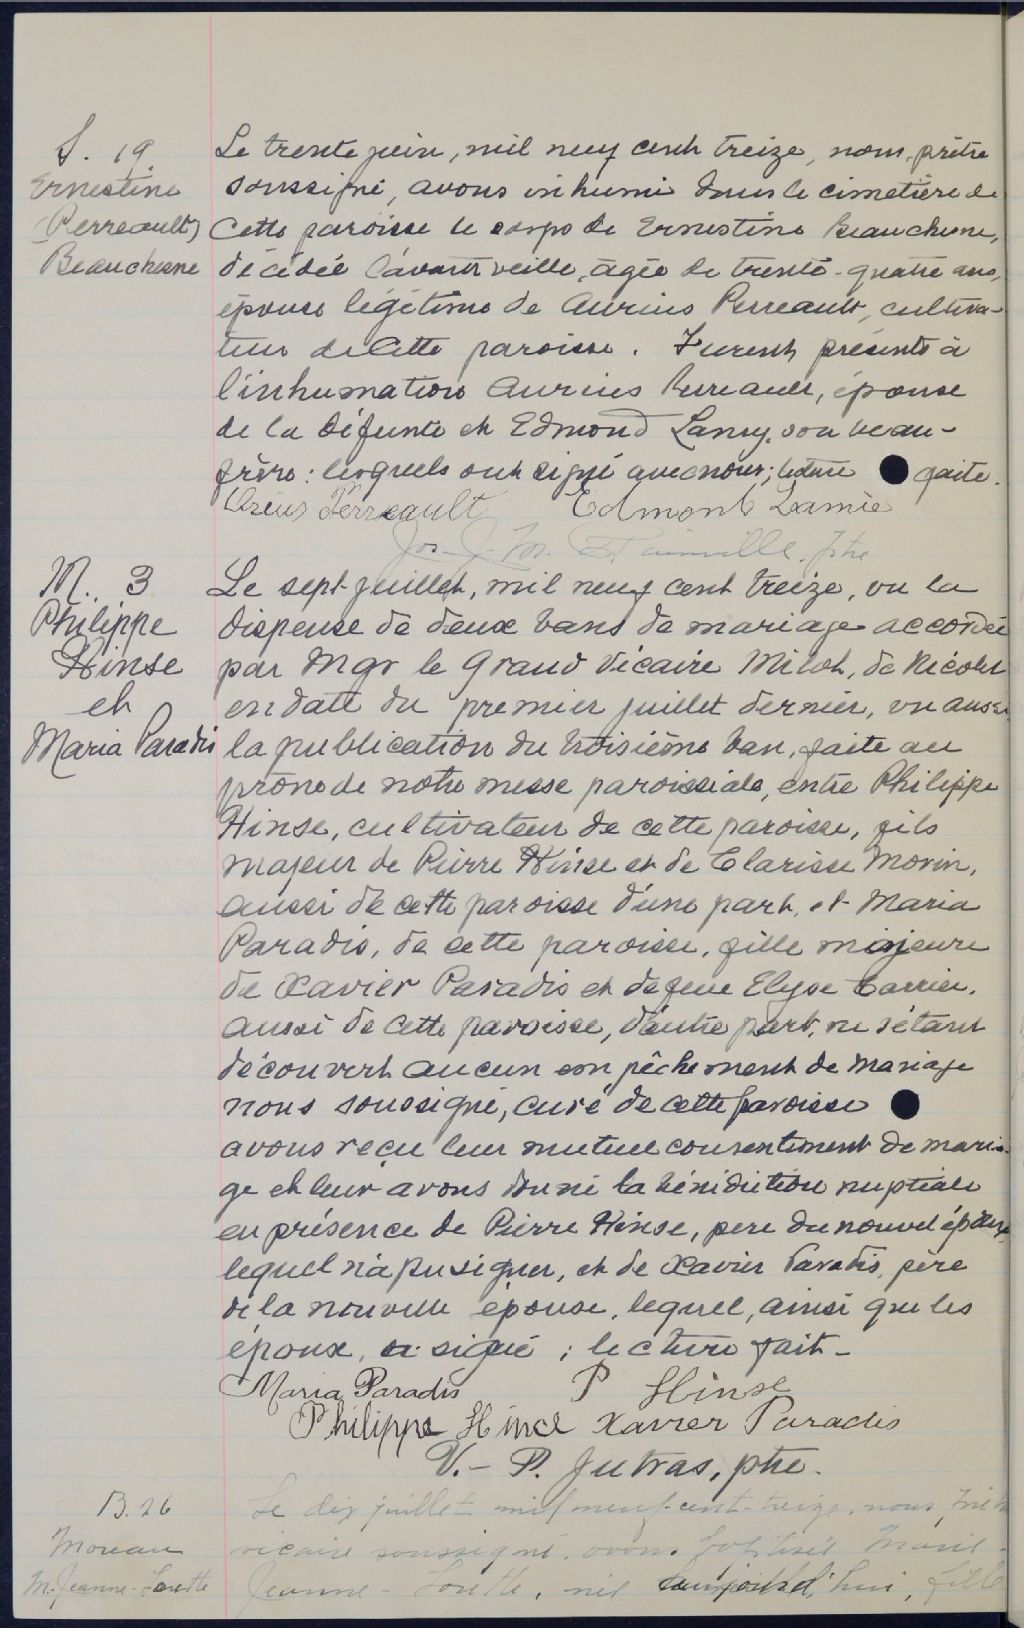 S. 19.
Ernestine
(Perreault)
Beauchesne
Le trente juin, mil neuf cent treize, nous, prêtre
soussigné, avons inhumé dans le cimetière de
Cette paroisse le corps de Ernestine Beauchesne,
décédée l'avant veille, âgée de trente-quatre ans,
épouse légitime de Aurius Perreault, cultiva-
teur de Cette paroisse. Furent présents à
l'inhumation Aurius Perreault, épouse
de la défunte et Edmond Lamy, son beau-
frère: lesquels ont signé avec nous; lecture faite.
Perreault Edmond Lamie
Jos-J-M. ptre
M. 3
Philippe
Hinse
et
Maria Paradis
Le sept juillet, mil neuf cent treize, vu la
dispense de deux bans de mariage accordée
par Mgr le Grand Vicaire Milot, de Nicolet
en date du premier juillet dernier, vu aussi
la publication du troisième ban, faite au
prône de notre messe paroissiale, entre Philippe
Hinse, cultivateur de cette paroisse, fils
majeur de Pierre Hinse et de Clarisse Morin,
aussi de cette paroisse d'une part, et Maria
Paradis, de cette paroisse, fille majeure
de Xavier Paradis et de feue Elyse Carrier,
aussi de cette paroisse, d'autre part, ne s'étant
découvert aucun empêchement de mariage
nous soussigné, curé de cette paroisse
avons reçu leur mutuel consentement de maria-
ge et leur avons donné la bénédiction nuptiale
en présence de Pierre Hinse, père du nouvel époux,
lequel n'a pu signer, et de Xavier Paradis, père
de la nouvelle épouse, lequel, ainsi que les
époux, a signé; lecture fait-
Maria Paradis P Hinse
Philippe Hince Xavier Paradis
V.-P. Jutras, ptre.
B. 26
Moreau
M. Jeanne-Lorette
Le dix juillet mil neuf-cent-treize, nous prêtre
vicaire soussigné, avons baptisé Marie-
Jeanne-Lorette, née aujourd'hui, fille